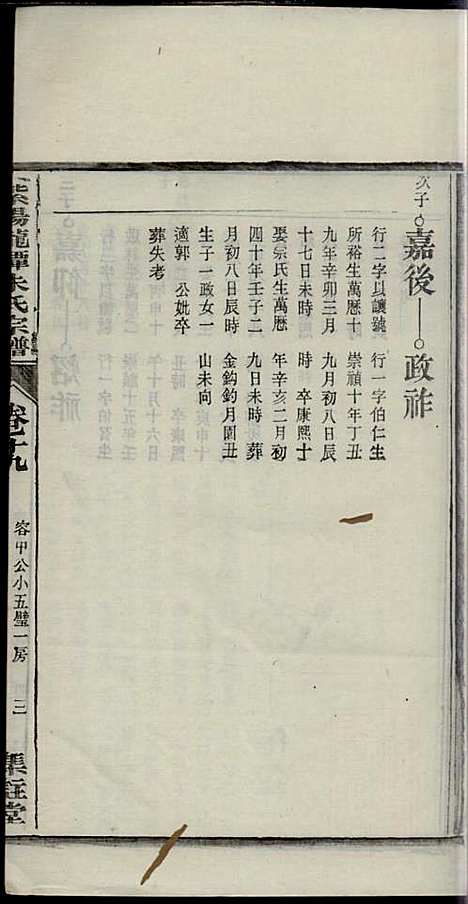 次子 嘉後 政祚
行二字以讓號
所裕生萬曆十
九年辛卯三月
十七日未時
娶宗氏生萬曆
四十年壬子二
月初八日辰時
生子一政女一
適郭 公妣卒
葬失考
行一字伯仁生
崇禎十年丁丑
九月初八日辰
時 卒康熙十
年辛亥二月初
九日未時 葬
金鈎釣月園丑
山未向
紫陽龍譚朱氏宗譜
卷十九
容甲公小五璧一房
三
集註堂